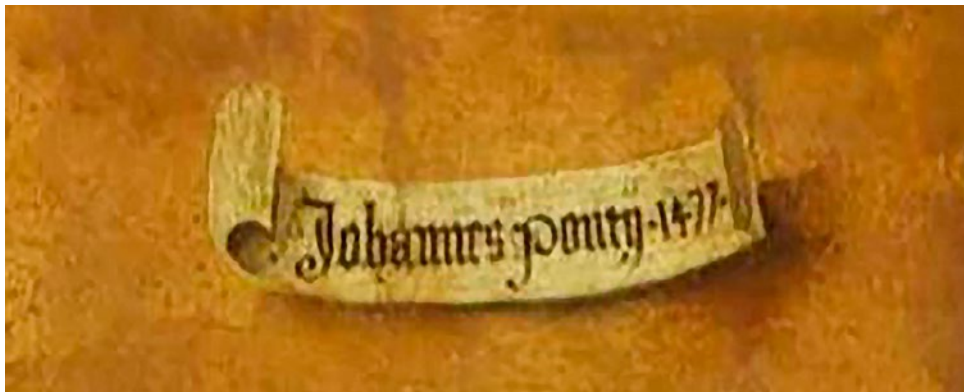 Johannes pontȳ·1477·